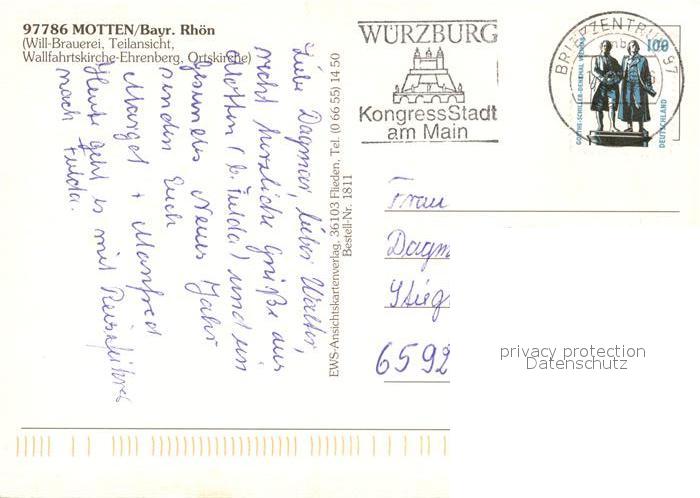 97786 MOTTEN/Bayr. Rhön
(Will-Brauerei, Teilansicht,
Wallfahrtskirche-Ehrenberg, Ortskirche)
Liebe Dagmar, lieber Walter,
recht herzliche Grüße aus
Motten (b. Fulda) und ein
gesundes Neues Jahr
senden Euch
Margot + Manfred
Heute geht es mit Reiseführer
nach Fulda.
EWS-Ansichtskartenverlag, 36103 Flieden, Tel. (0 66 55) 14 50
Bestell-Nr. 1811
WÜRZBURG
KongressStadt
am Main
BRIEFZENTRUM 97
100
GOETHE-SCHILLER-DENKMAL WEIMAR
DEUTSCHLAND
Frau
Dagm
Stieg
6592
privacy protection
Datenschutz